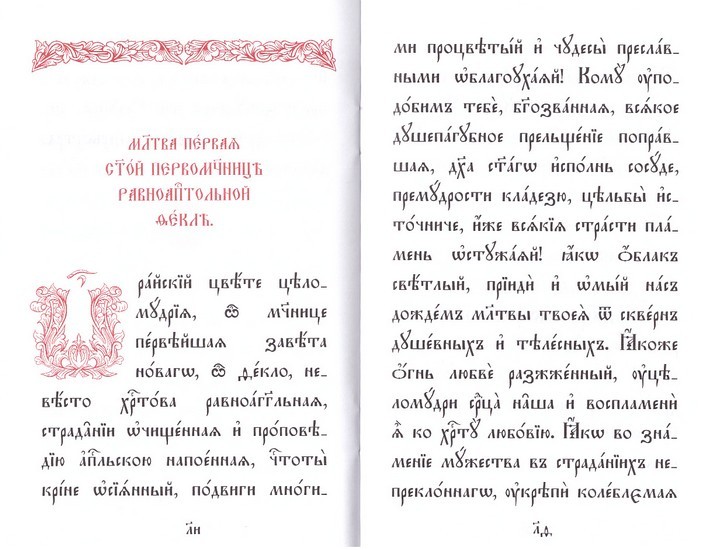 мл҃тва пе́рвая
ст҃о́й первомч҃ницѣ
равноап҃тольной
ѳе́клѣ.
ра́йскїй цвѣ́те цѣло-
мꙋ́дрїя, ѽ мч҃нице
пе́рвѣйшая завѣ́та
но́вагѡ, ѽ ѳе́кло, не-
вѣ́сто хрⷭ҇то́ва равноагг҃льная,
страда́нїи ѡ҆чище́нная и҆ про́повѣ-
дїю а҆пⷭ҇льскою напое́нная, чⷭ҇тоты̀
крі́не ѡ҆сїѧ́нный, по́двиги мно́ги-
л҃и
ми процвѣты́й и҆ чꙋдесы̀ пресла́в-
ными ѡ҆благоꙋха́ѧй! Комꙋ̀ ᲂу҆по-
до́бимъ тебѐ, бг҃озва́нная, всѧ́кое
дꙋшепа́гꙋбное прельще́нїе попра́в-
шая, дх҃а ст҃а́гѡ и҆спо́лнь сосꙋ́де,
премꙋ́дрости кла́дезю, цѣльбы̀ и҆с-
то́чниче, и҆́же всѧ̑кїѧ стра̑сти пла́-
мень ѡ҆стꙋжа́ѧй! ꙗ҆́кѡ ѻ҆́блак
свѣ́тлый, прїидѝ и҆ ѡ҆мы́й на́съ
дождéмъ мл҃твы твоеѧ̀ ѿ скве́рнъ
дꙋше́вныхъ и҆ тѣле́сныхъ. Ꙗ҆́коже
ѻ҆́гнь любвѐ разжже́нный, ᲂу҆цѣ-
ломꙋ́дри срⷣца̀ на̑ша и҆ воспламенѝ
ѧ҆̀ ко хрⷭ҇тꙋ̀ любо́вїю. Ꙗ҆́кѡ во зна́-
менїе мꙋ́жества въ страда́нїихъ не-
прекло́ннагѡ, ᲂу҆крѣпѝ колє́блємая
л҃ѳ